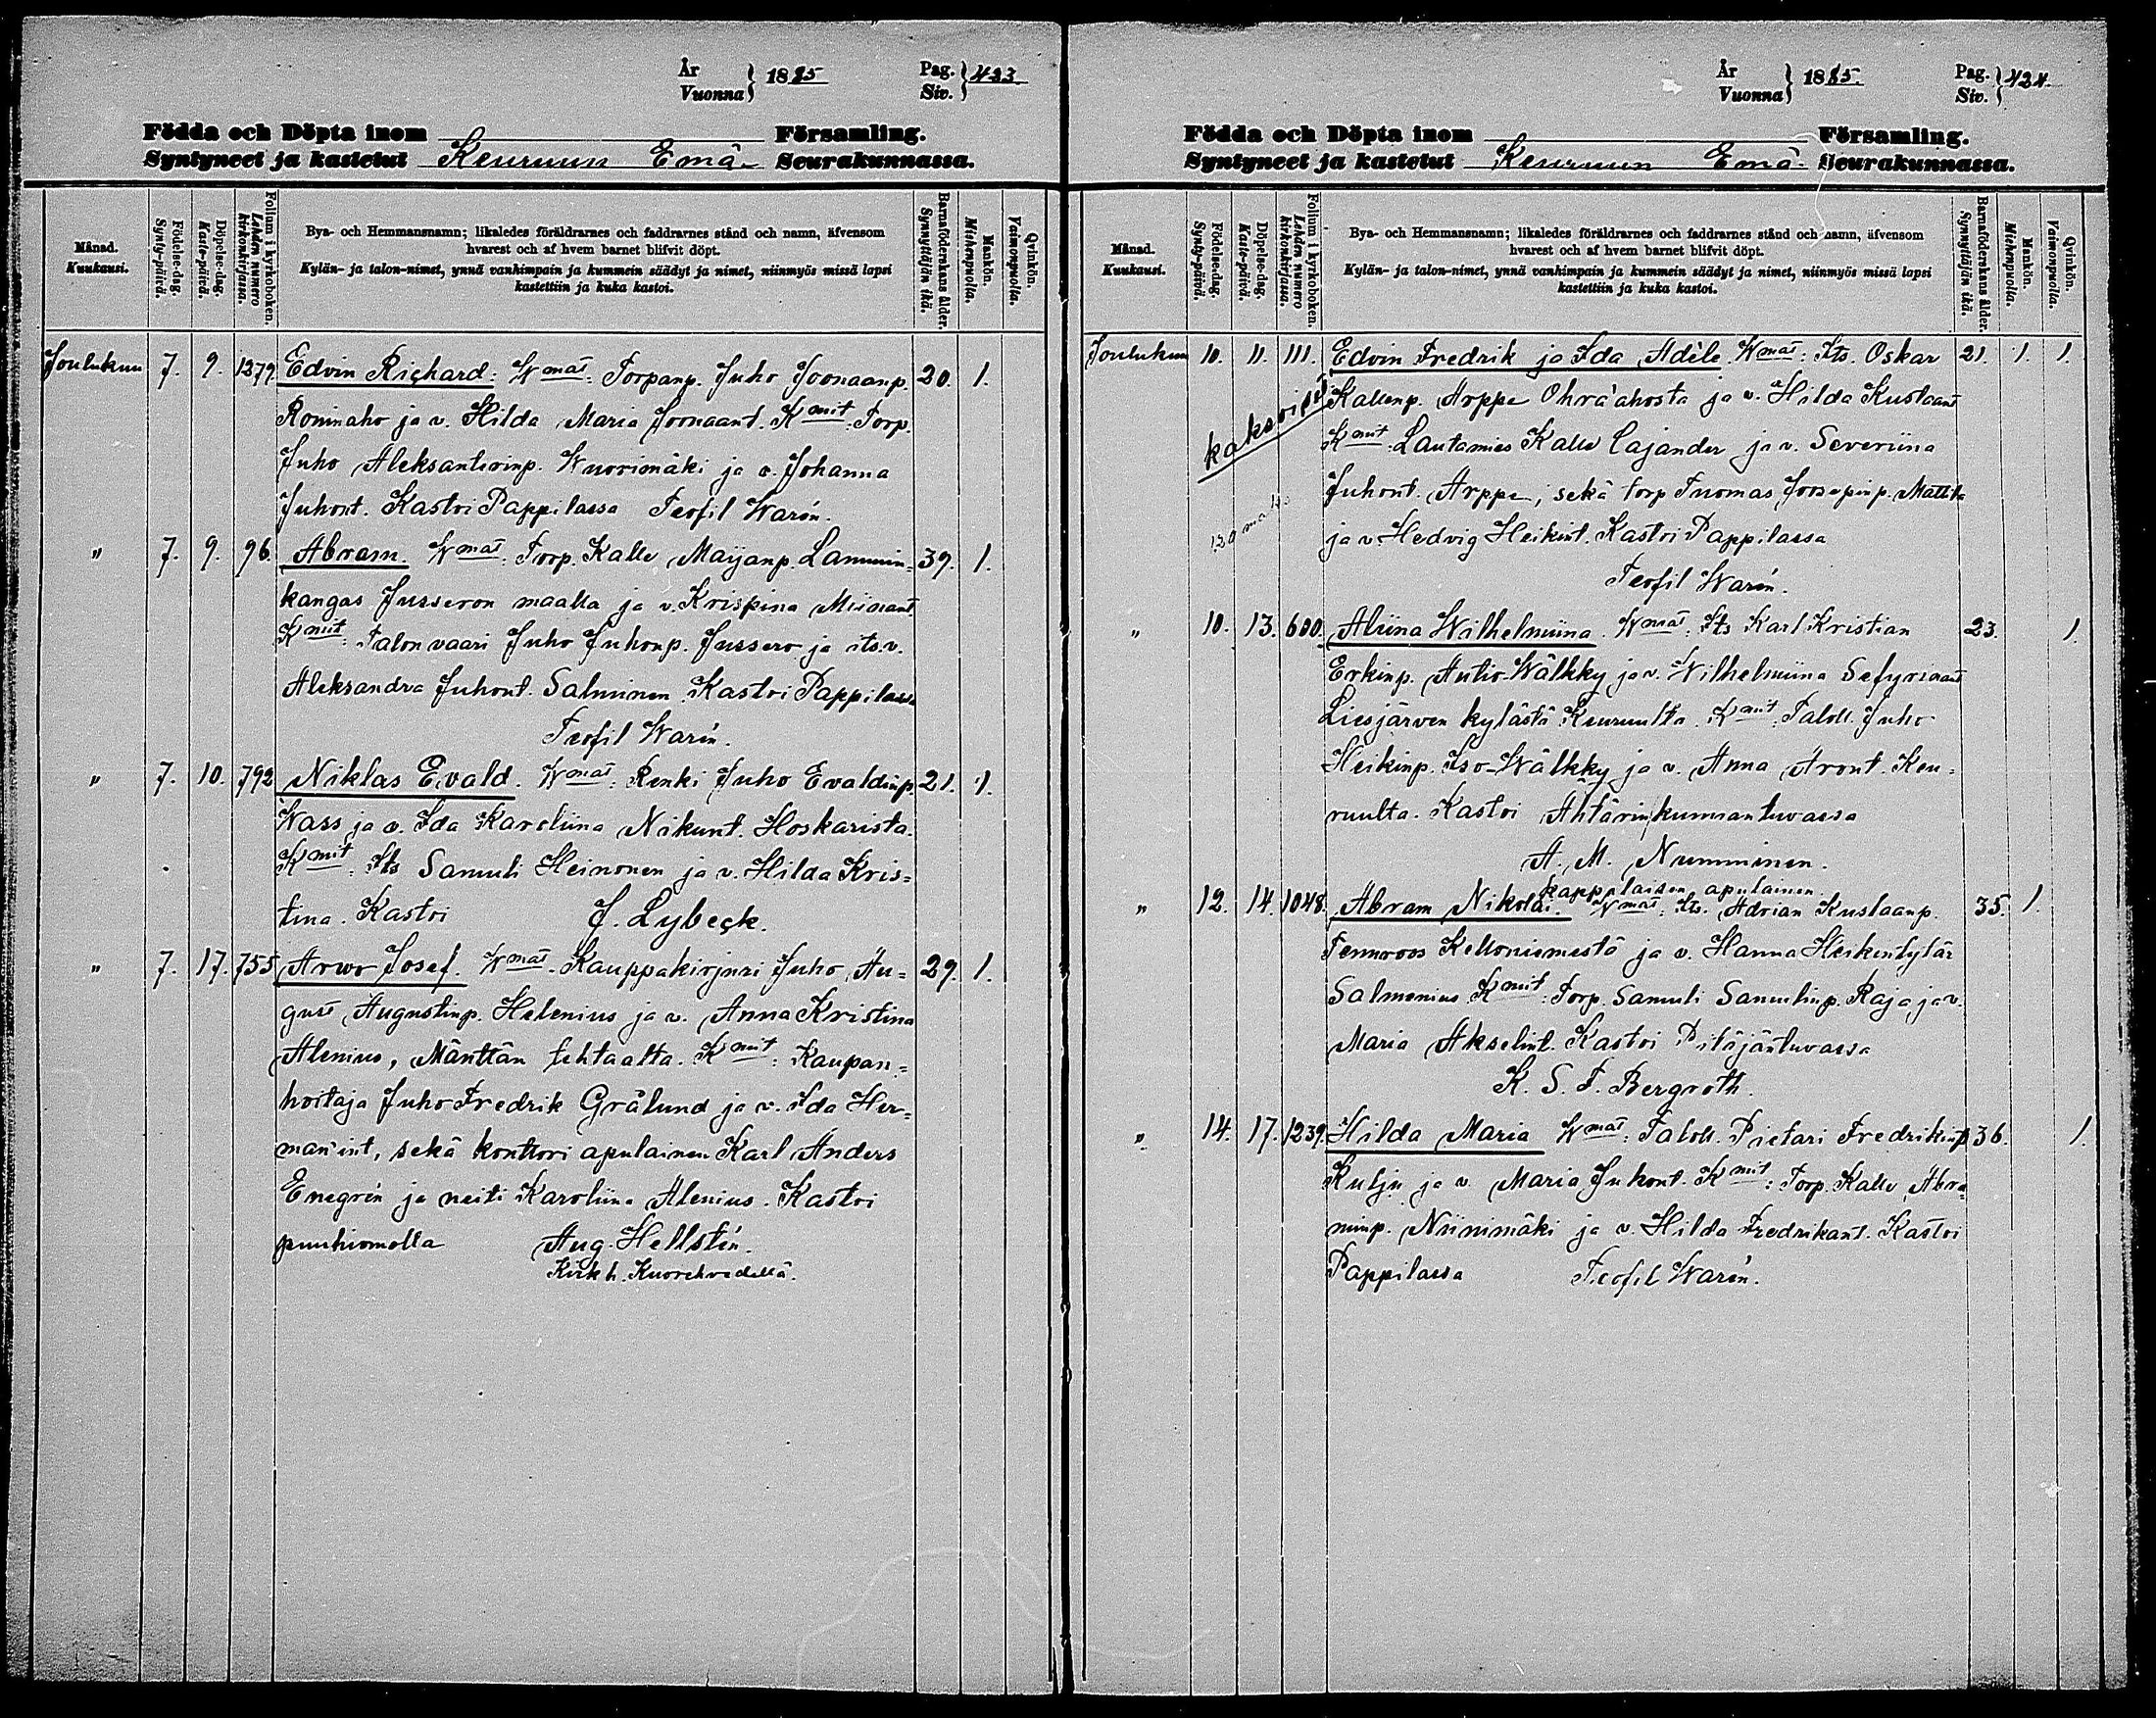 År
Vuonna } 1885
Pag.
Siv. } 423
Födda och Döpta inom Församling.
Syntyneet ja kastetut Keuruun Emä- Seurakunnassa.
Månad.
Kuukausi.
Födelse-dag.
Synty-päivä.
Döpelse-dag.
Kaste-päivä.
Folium i kyrkoboken.
Lehden numero
kirkonkirjassa.
Bya- och Hemmansnamn; likaledes föräldrarnes och faddrarnes stånd och namn, äfvensom
hvarest och af hvem barnet blifvit döpt.
Kylän- ja talon-nimet, ynnä vanhimpain ja kummein säädyt ja nimet, niinmyös missä lapsi
kastettiin ja kuka kastoi.
Barnaföderskans ålder.
Synnyttäjän ikä.
Mankön.
Miehenpuolia.
Qvinkön.
Vaimonpuolia.
Joulukuu 7. 9. 1279. Edvin Richard: Wmat: Torpanp. Juho Joonaanp. 20. 1.
Rominaho ja v. Hilda Maria Joonaant. Kmit: Torp.
Juho Aleksanterinp. Wuorimäki ja v. Johanna
Juhont. Kastoi Pappilassa Teofil Warén.
" 7. 9. 96. Abram. Wmat: Torp. Kalle Maijanp. Lammin= 39. 1.
kangas Jusseron maalla ja v. Krispina Miinant.
Kmit: Talon vaari Juho Juhonp. Jussero ja its. v.
Aleksandra Juhont. Salminen. Kastoi Pappilassa
Teofil Warén.
" 7. 10. 792 Niklas Evald. Wmat: Renki Juho Evaldinp. 21. 1.
Wass ja v. Ida Karoliina Nikunt. Hoskarista.
Kmit: Its Samuli Heinonen ja v. Hilda Kris=
tina. Kastoi J. Lybeck.
" 7. 17. 755 Arwo Josef. Wmat. Kauppakirjuri Juho Au= 29. 1.
gust Augustinp. Helenius ja v. Anna Kristina
Alenius, Mänttän tehtaalta. Kmit: Kaupan=
hoitaja Juho Fredrik Grälund ja v. Ida Her=
manint, sekä konttori apulainen Karl Anders
Enegrén ja neiti Karoliina Alenius. Kastoi
puuhiomolla Aug. Hellstén.
Kirkh. Kuorehvedellä.
År
Vuonna } 1885.
Pag.
Siv. } 424.
Födda och Döpta inom Församling.
Syntyneet ja kastetut Keuruun Emä- Seurakunnassa.
Månad.
Kuukausi.
Födelse-dag.
Synty-päivä.
Döpelse-dag.
Kaste-päivä.
Folium i kyrkoboken.
Lehden numero
kirkonkirjassa.
Bya- och Hemmansnamn; likaledes föräldrarnes och faddrarnes stånd och namn, äfvensom
hvarest och af hvem barnet blifvit döpt.
Kylän- ja talon-nimet, ynnä vanhimpain ja kummein säädyt ja nimet, niinmyös missä lapsi
kastettiin ja kuka kastoi.
Barnaföderskans ålder.
Synnyttäjän ikä.
Mankön.
Miehenpuolia.
Qvinkön.
Vaimonpuolia.
Joulukuu 10. 11. 111. Edvin Fredrik ja Ida Adèle. Wmat: Its. Oskar 21. 1. 1.
kaksoiset
Kallenp. Arppe Ohra'ahosta ja v. Hilda Kustaant
Kmit: Lautamies Kalle Cajander ja v. Severiina
Juhont. Arppe; sekä torp Tuomas Joosepinp. Mattila
ja v. Hedvig Heikint. Kastoi Pappilassa
Teofil Warén.
" 10. 13. 600. Aliina Wilhelmiina. Wmat: Its Karl Kristian 23. 1.
Erkinp. Autio-Wälkky ja v. Wilhelmiina Sefyrinant
Liesjärven kylästä Keuruulta. Kmit: Taloll. Juho
Heikinp. Iso-Wälkky ja v. Anna Aront. Keu=
ruulta. Kastoi Ähtärin kunnantuvassa
A. M. Numminen.
kappalaisen apulainen
" 12. 14. 1048. Abram Nikolai. Wmat: Its. Adrian Kustaanp. 35. 1.
Tennroos Kelloniemestä ja v. Hanna Heikintytär
Salmenius. Kmit: Torp. Samuli Samulinp. Raja ja v.
Maria Akselint. Kastoi Pitäjäntuvassa
K. S. F. Bergroth.
" 14. 17. 1239. Hilda Maria Wmat: Taloll. Pietari Fredrikinp 36. 1.
Kulju ja v. Maria Juhont. Kmit: Torp. Kalle Abra=
minp. Niinimäki ja v. Hilda Fredrikant. Kastoi
Pappilassa Teofil Warén.